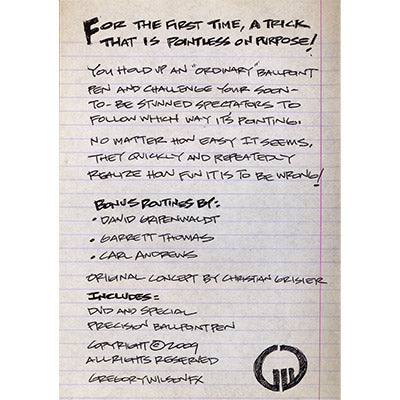 FOR THE FIRST TIME, A TRICK
THAT IS POINTLESS ON PURPOSE!
YOU HOLD UP AN "ORDINARY" BALLPOINT
PEN AND CHALLENGE YOUR SOON-
TO-BE STUNNED SPECTATORS TO
FOLLOW WHICH WAY IT'S POINTING.
NO MATTER HOW EASY IT SEEMS,
THEY QUICKLY AND REPEATEDLY
REALIZE HOW FUN IT IS TO BE WRONG!
BONUS ROUTINES BY:
• DAVID GRIPENWALDT
• GARRETT THOMAS
• CARL ANDREWS
ORIGINAL CONCEPT BY CHRISTIAN GRISIER
INCLUDES:
DVD AND SPECIAL
PRECISION BALLPOINT PEN
COPYRIGHT © 2009
ALL RIGHTS RESERVED
GREGORYWILSONFX